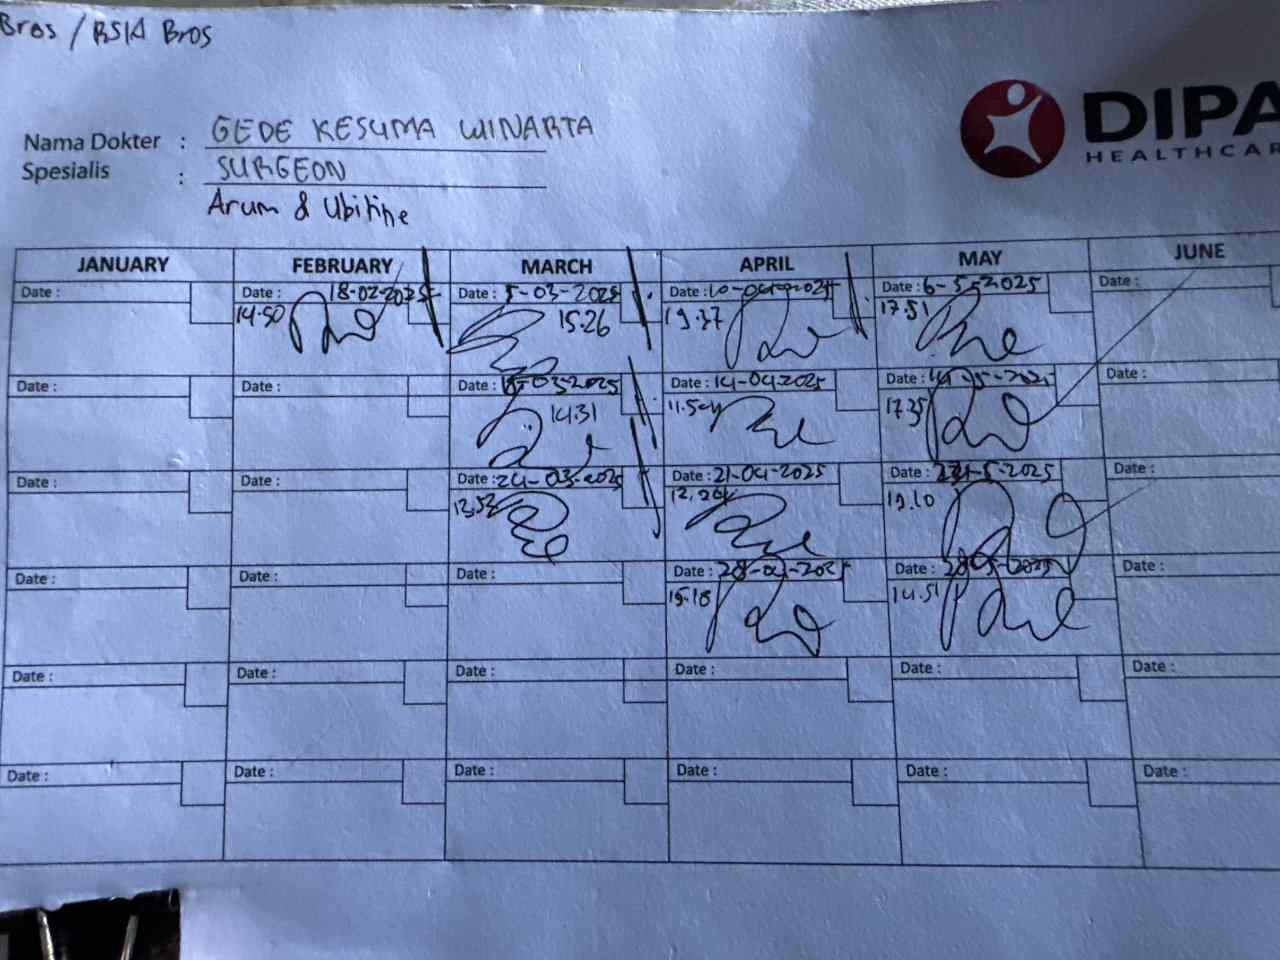 Bros / RSIA Bros
DIPA
HEALTHCAR
Nama Dokter : GEDE KESUMA WINARTA
Spesialis : SURGEON
Arum & Ubitine
JANUARY FEBRUARY MARCH APRIL MAY JUNE
Date : Date : 18-02-2025 Date : 5-03-2025 Date : 10-04-2025 Date : 6-5-2025 Date :
14.50 15.26 19.37 17.51
Date : Date : Date : 18-03-2025 Date : 14-04-2025 Date : Date :
14.31 11.54 17.35
Date : Date : Date : 24-03-2025 Date : 21-04-2025 Date : -5-2025 Date :
13.53 12.24 19.10
Date : Date : Date : Date : 28-04-2025 Date : 28-5-2025 Date :
15.18 14.51
Date : Date : Date : Date : Date : Date :
Date : Date : Date : Date : Date : Date :